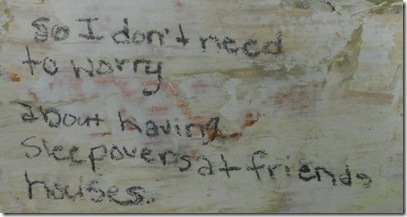 So I don't need
to worry
about having
sleepovers at friends
houses.